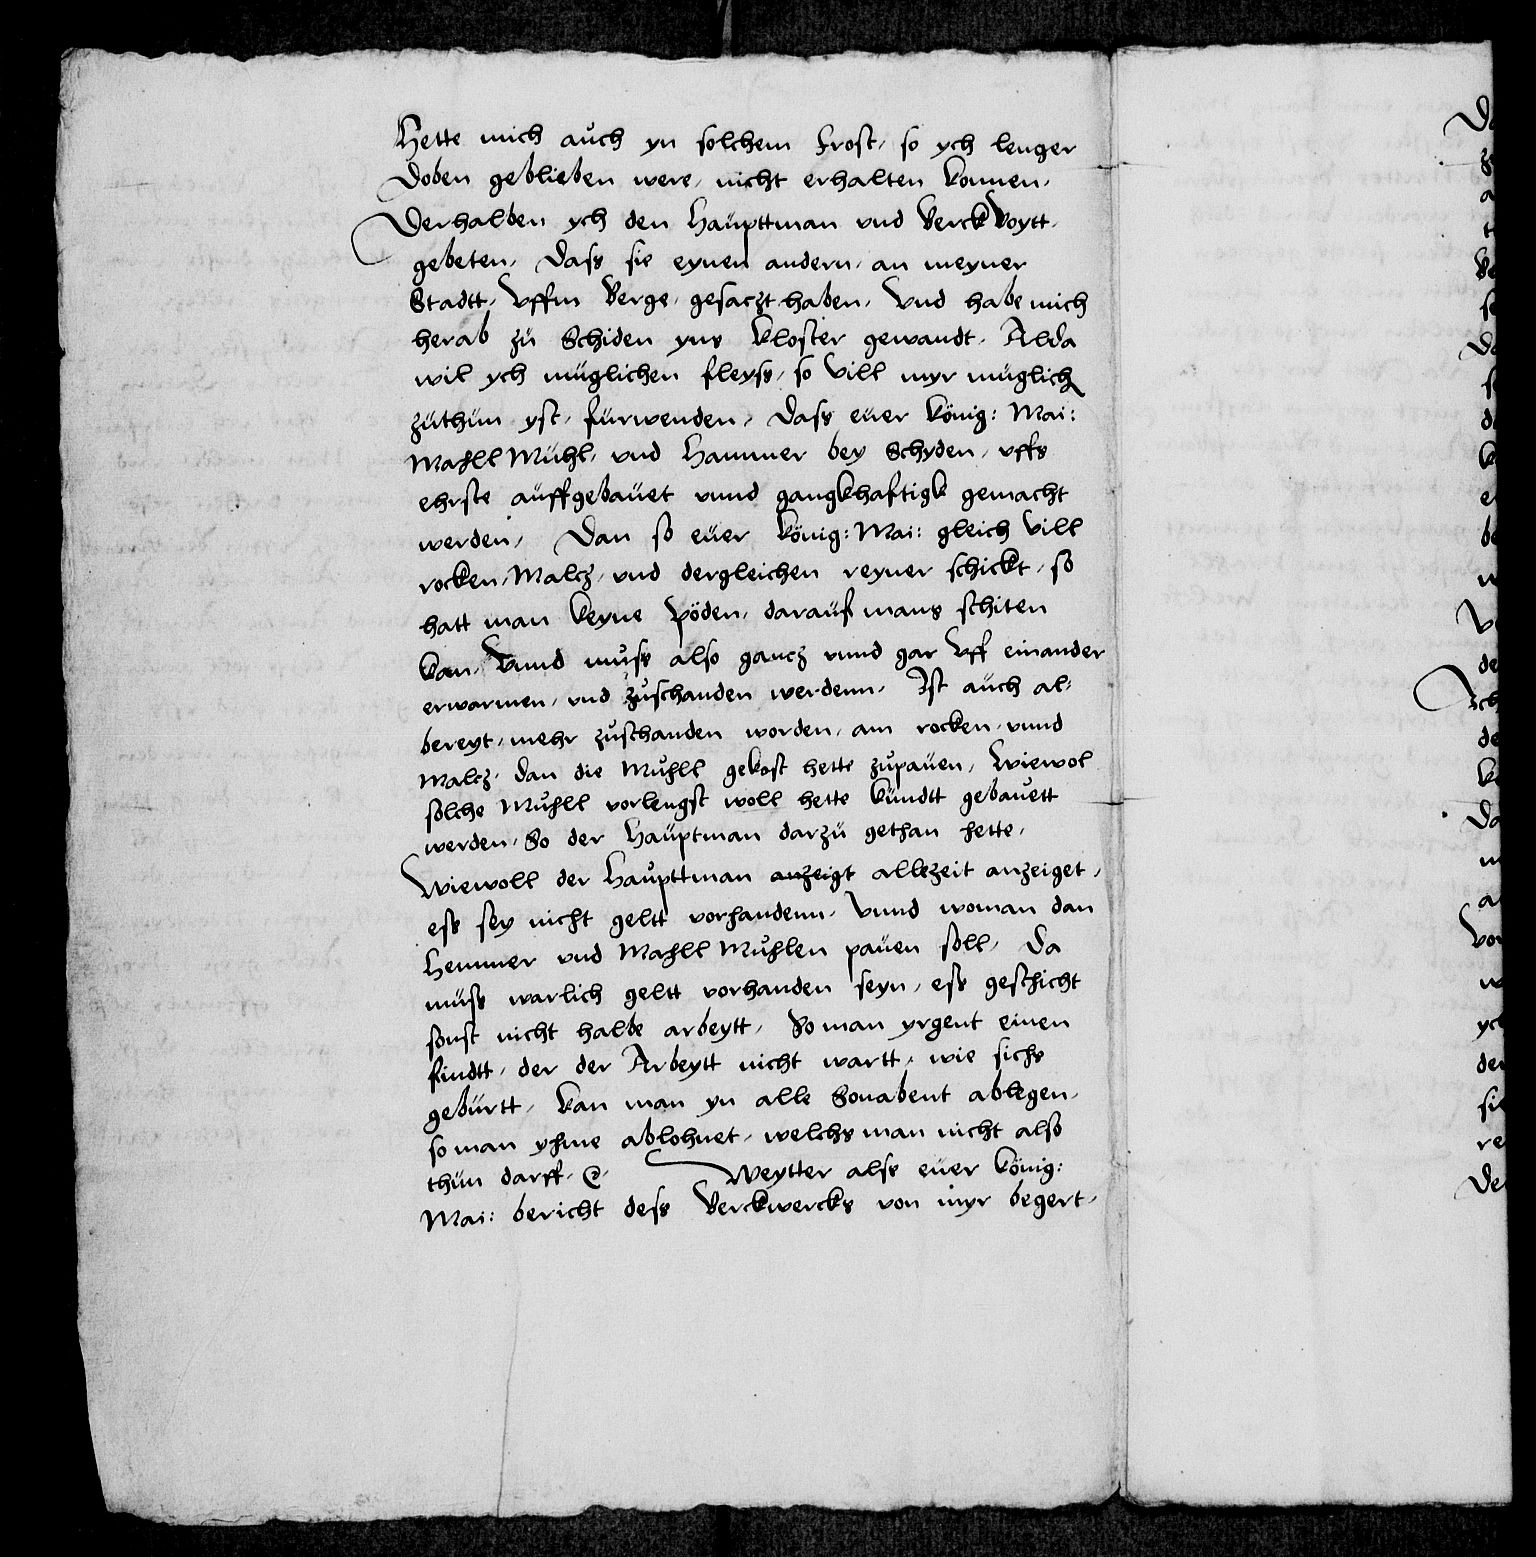 Hette mich auch yn solchem Frost, so ych lenger
Doben geblieben were, nicht erhalten konnen,
Derhalben ych den Haüpttman und Berck Voytt,
gebeten, Dass sie eynen andern, an meyner
Stadtt, Uffm Berge, gesaczt haben, Und habe mich
herab zü Schiden yns Kloster gewandt, Alda
wil ych müglichen fleyss, so vill myr müglich
züthün yst, fürwenden, Dass eüer König: Mai:
Mahll Mühl, und Hammer bey Schyden, uffs
ehrste aüffgebaüet unnd gangkhaftigk gemacht
werden, Dan so eüer König: Mai: gleich vill
rocken, Malcz, und dergleichen reyner schickt, so
hatt man keyne Pöden, daraüf mans schiten
kan, Vnnd müss also gancz unnd gar Uff einander
erwarmen, und züschanden werdenn, Ist aüch al-
bereyt, mehr züschanden worden, am rocken, unnd
Malcz, dan die Mühll gekost hette züpaüen, Wiewol
solche Mühll vorlengst woll hette kündtt gebaüett
werden, So der Haüptman darzü gethan hette,
Wiewoll der Haüpttman anzeigt allezeit anzeiget,
ess sey nicht geltt vorhandenn, Vnnd woman dan
Hemmer und Mahll Mühlen paüen soll, Da
müss warlich geltt vorhanden seyn, ess geschicht
sonst nicht halbe arbeytt, So man yrgent einen
findtt, der der Arbeytt nicht wartt, wie sichs
gebürtt, kan man yn alle Sonabent ablegen,
so man yhme ablohnet, welchs man nicht also
thün darff. Weytter alss eüer König:
Mai: bericht dess Berckwercks von myr begert,